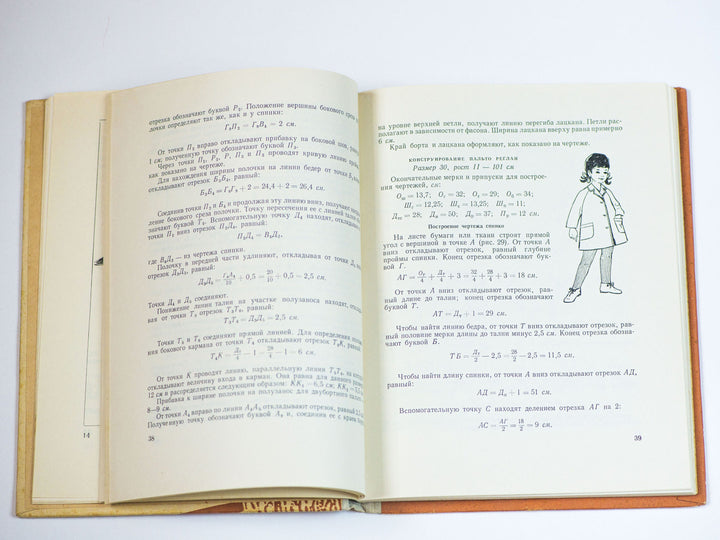 отрезка обозначают буквой Р₂. Положение вершины бокового среза
лочки определяют так же, как и у спинки:
Г₃П₃ = Г₀В₄ = 2 см.
От точки П₃ вправо откладывают прибавку на боковой шов,
1 см; полученную точку обозначают буквой П₂.
Через точки П₂, Р, П₁ и П₅ проводят кривую линию
как показано на чертеже.
Для нахождения ширины полочки на линии бедер от точки
откладывают отрезок Б₃Б₄, равный:
Соединив точки П₃ и Б₄ и продолжая эту линию вниз, получают
ление бокового среза полочки. Точку пересечения ее с линией
значают буквой Т₃. Вспомогательную точку Д₄ находят,
от точки П₃ вниз отрезок П₃Д₄, равный:
П₃Д₄ = В₄Д₃,
где В₄Д₃ — из чертежа спинки.
Полочку в передней части удлиняют, откладывая от точки
отрезок равный:
Точки Д₄ и Д₅ соединяют.
Понижение линии талии на участке полузаноса находят,
вая от точки Т₃ отрезок Т₃Т₄, равный:
Т₃Т₄ = Д₃Д₅ = 2,5 см.
Точки Т₄ и Т₅ соединяют прямой линией. Для определения
ния бокового кармана от точки откладывают отрезок равный:
От точки К проводят линию, параллельную линии на
откладывают величину входа в карман. Она равна для данного
12 см и распределяется следующим образом: КК₁ = 6,5 см;
Прибавка к ширине полочки на полузанос для двубортного
8—9 см.
От точки А₄ вправо по линии откладывают отрезок, равный 2,5
Полученную точку обозначают буквой и, соединив ее с краем
14
38
на уровне верхней петли, получают линию перегиба лацкана. Петли рас-
полагают в зависимости от фасона. Ширина лацкана вверху равна примерно
6 см.
Край борта и лацкана оформляют, как показано на чертеже.
КОНСТРУИРОВАНИЕ ПАЛЬТО РЕГЛАН
Размер 30, рост 11 — 101 см
Окончательные мерки и припуски для построе-
ния чертежей, см:
Построение чертежа спинки
На листе бумаги или ткани строят прямой
угол с вершиной в точке А (рис. 29). От точки А
вниз откладывают отрезок, равный глубине
проймы спинки. Конец отрезка обозначают бук-
вой Г.
АГ = Ог/4 + Дт/4 + 3 = 32/4 + 28/4 + 3 = 18 см.
От точки А вниз откладывают отрезок, рав-
ный длине до талии; конец отрезка обозначают
буквой Т.
АТ = Дт + 1 = 29 см.
Чтобы найти линию бедра, от точки Т вниз откладывают отрезок, рав-
ный половине мерки длины до талии минус 2,5 см. Конец отрезка обозна-
чают буквой Б.
ТБ = Дт/2 — 2,5 = 28/2 — 2,5 = 11,5 см.
Чтобы найти длину спинки, от точки А вниз откладывают отрезок АД,
равный:
АД = Дп + 1 = 51 см.
Вспомогательную точку С находят делением отрезка АГ на 2:
АС = АГ/2 = 18/2 = 9 см.
39